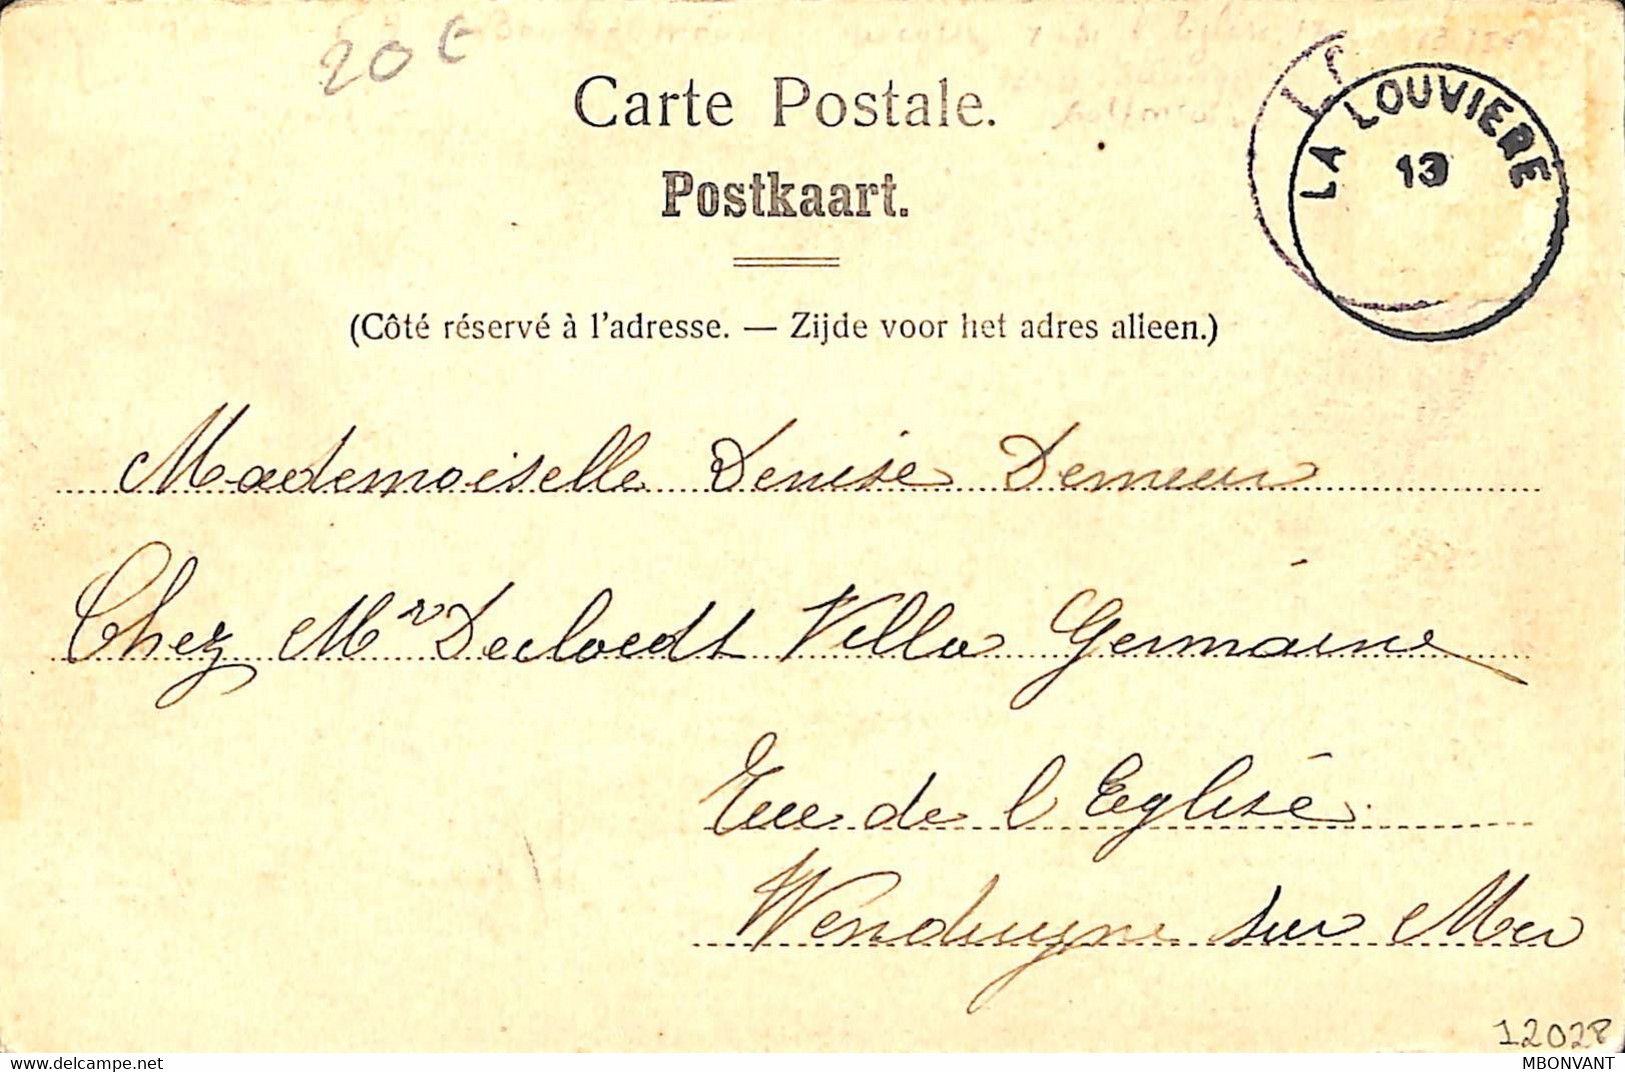 20 €
Carte Postale.
Postkaart.
LA LOUVIERE
13
(Côté réservé à l'adresse. — Zijde voor het adres alleen.)
Mademoiselle Denise Demeur
Chez Mr Decloedt Villa Germaine
Rue de l'Eglise
Wenduyne sur Mer
12028
MBONVANT